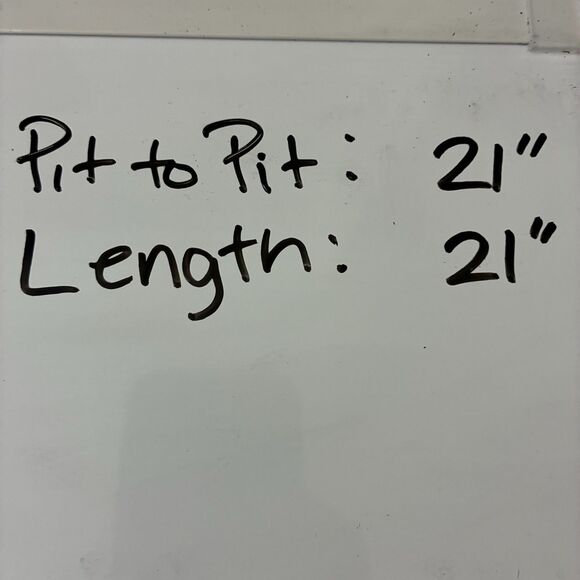 Pit to Pit: 21"
Length: 21"